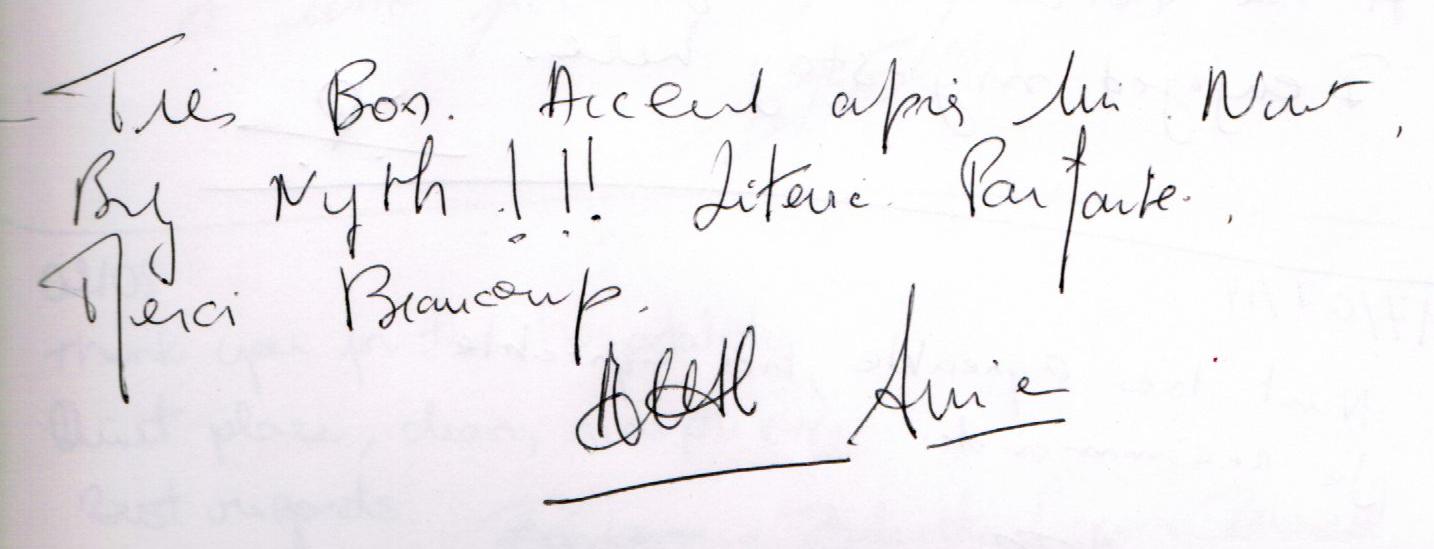 Très Bon. Accent après lui Nuit,
By Nyth !!! Literie Parfaite.
Merci Beaucoup.
Amie